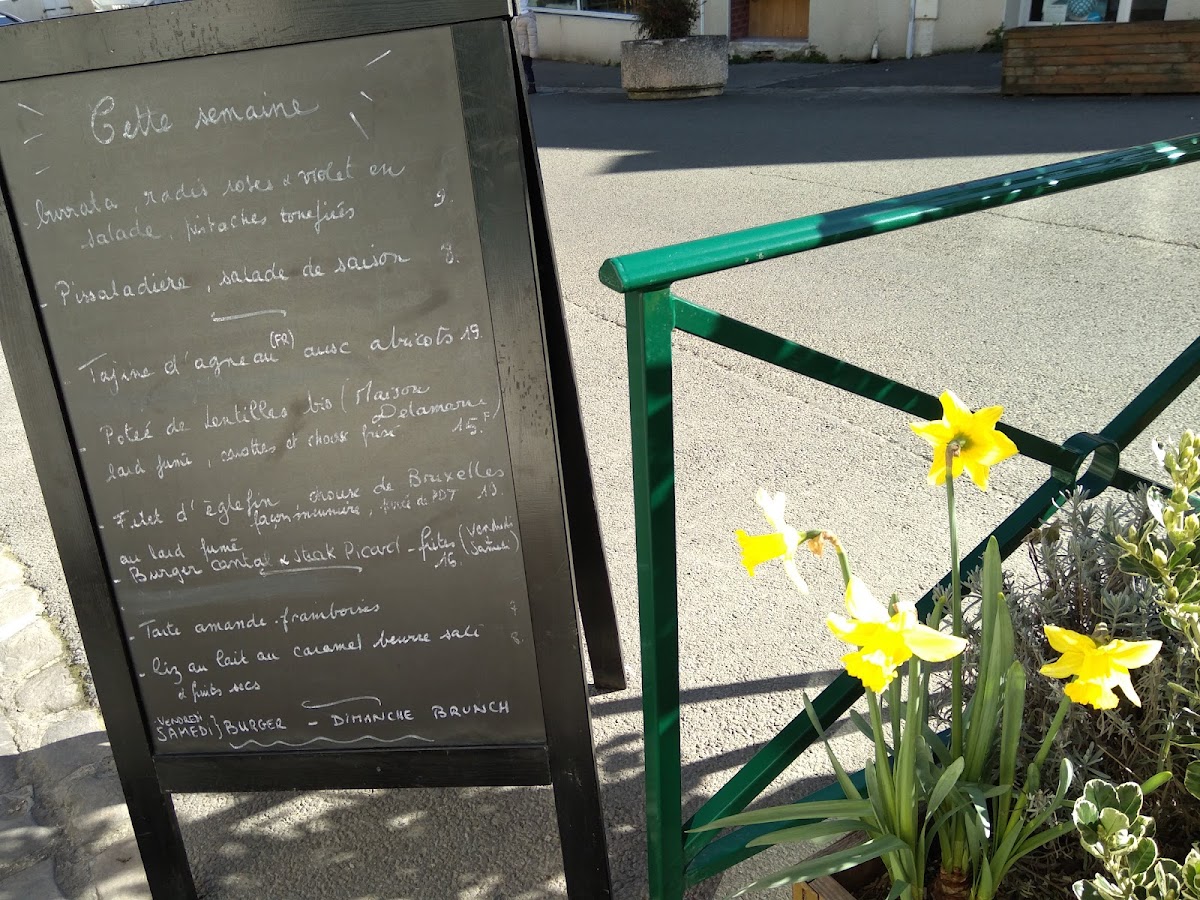 Cette semaine
- burrata, radis roses & violet en
salade, pistaches torrefiées 9.
- Pissaladière, salade de saison 8.
- Tajine d'agneau (FR) aux abricots 19.
- Poteé de lentilles bio (Maison
Delamarne)
lard fumé, carottes et choux frisé 15.
- Filet d'églefin choux de Bruxelles
façon meunière, purée de PDT 19.
au lard fumé
- Burger cantal & steak Picard - frites (Vendredi
Samedi) 16.
- Tarte amande-framboises 7
- Riz au lait au caramel beurre salé 8.
& fruits secs
VENDREDI
SAMEDI } BURGER - DIMANCHE BRUNCH